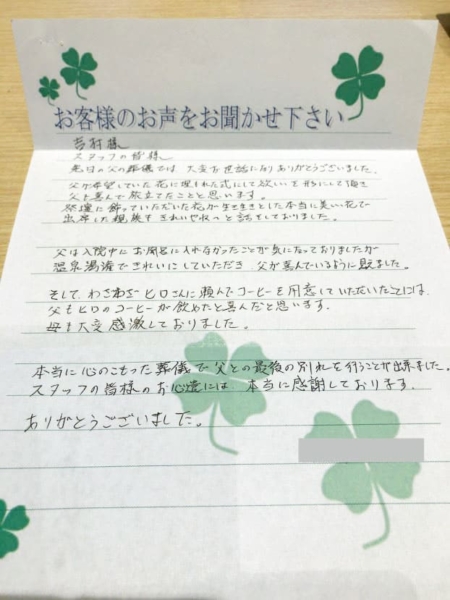 お客様のお声をお聞かせ下さい
様
スタッフの皆様
先日の父の葬儀では、大変お世話になりありがとうございました。
父が希望していた花に埋もれた式にして欲しいを形にして頂き
父も喜んで旅立てたことと思います。
祭壇に飾っていただいた花が生き生きとした本当に美しい花で
出席した親族も きれいやねっと話をしておりました。
父は入院中に お風呂に入れなかったことが気になっておりましたが
温泉湯灌できれいにしていただき、父が喜んでいるように見えました。
そして、わざわざヒロさんに頼んでコーヒーを用意していただいたことには、
父もヒロのコーヒーが飲めたと喜んだと思います。
母も大変感激しておりました。
本当に心のこもった葬儀で父との最後の別れを行うことが出来ました。
スタッフの皆様のお心遣には 本当に感謝しております。
ありがとうございました。